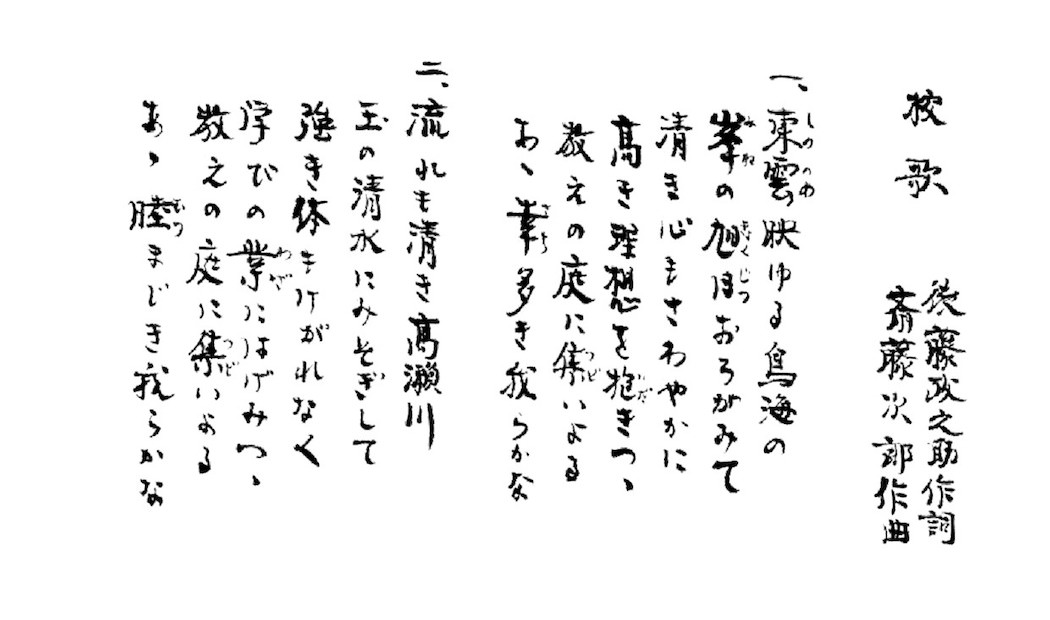 校歌
後藤政之助作詞
斎藤次郎作曲
一、東雲映ゆる鳥海の
峯の旭日おろがみて
清き心もさわやかに
高き理想を抱きつゝ
教えの庭に集いよる
あゝ幸多き我らかな
二、流れも清き高瀬川
玉の清水にみそぎして
強き体もけがれなく
学びの業にはげみつゝ
教えの庭に集いよる
あゝ睦まじき我らかな